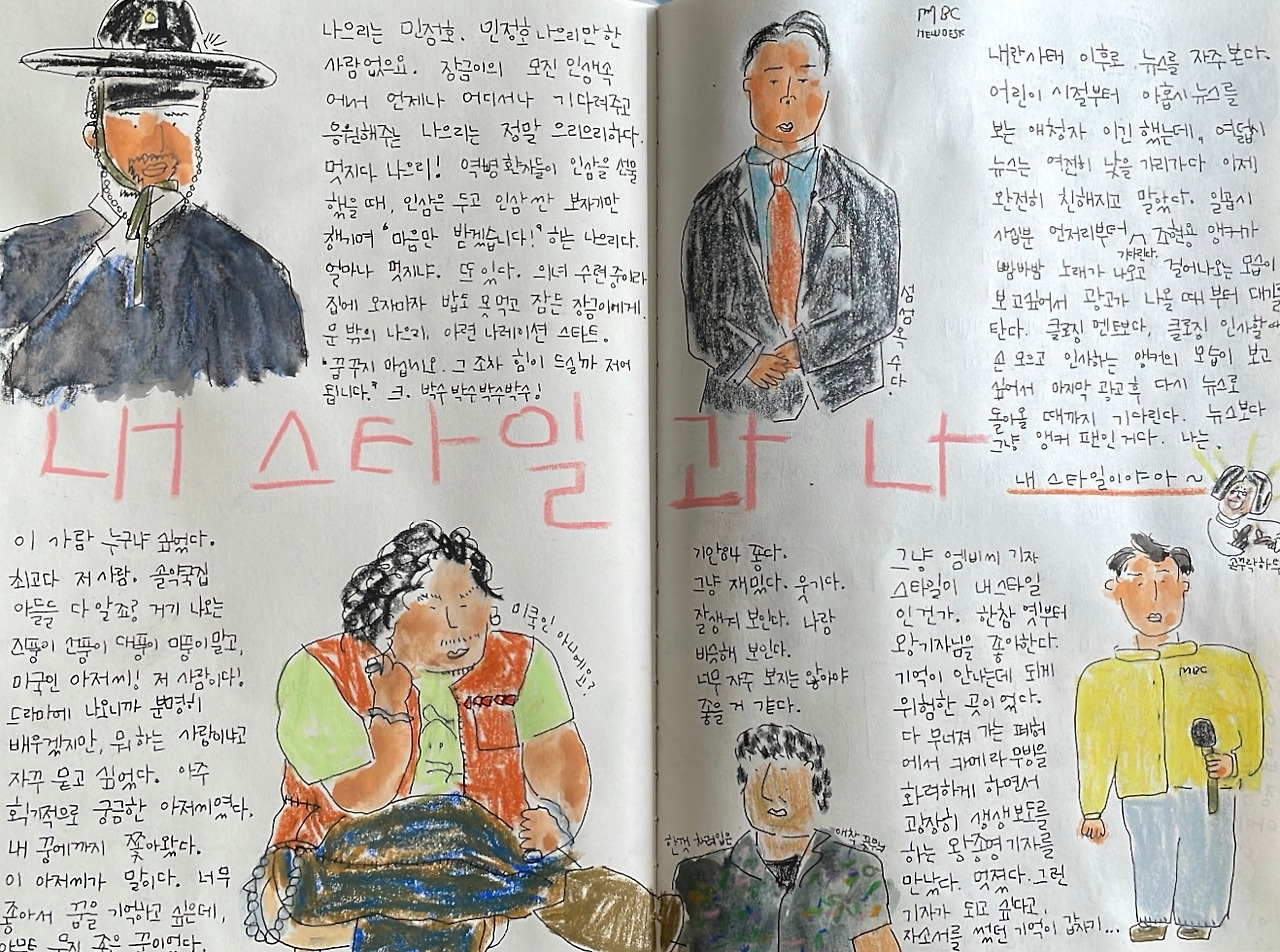 나으리는 민정호. 민정호 나으리만 한
사람 없으요. 장금이의 모진 인생 속
에서 언제나 어디서나 기다려주고
응원해주는 나으리는 정말 으리으리하다.
멋지다 나으리! 역병 환자들이 인삼을 선물
했을 때, 인삼은 두고 인삼 싼 보자기만
챙기며 "마음만 받겠습니다!" 하는 나으리다.
얼마나 멋지냐. 또 있다. 의녀 수련 중이라
집에 오자마자 밥도 못 먹고 잠든 장금이에게.
문 밖의 나으리, 아련 나레이션 스타트.
"꿈꾸지 마십시오. 그 조차 힘이 드실까 저어
됩니다." 크. 박수 박수박수박수!
MBC
NEWDESK
내란사태 이후로 뉴스를 자주 본다.
어린이 시절부터 아홉시 뉴스를
보는 애청자 이긴 했는데, 여덟시
뉴스는 여전히 낯을 가리가다 이제
완전히 친해지고 말았다. 일곱시
사십분 언저리부터 기다린다. 조현용 앵커가
빰바밤 노래가 나오고 걸어나오는 모습이
보고싶어서 광고가 나올 때부터 대기
탄다. 클로징 멘트보다, 클로징 인사할 때
손 모으고 인사하는 앵커의 모습이 보고
싶어서 마지막 광고 후 다시 뉴스로
돌아올 때까지 기다린다. 뉴스보다
그냥 앵커 팬인 거다. 나는.
내 스타일이야아~
내 스타일과 나
이 사람 누구냐 싶었다.
최고다 저 사람. 솔약국집
아들들 다 알죠? 거기 나오는
진풍이 선풍이 대풍이 미풍이 말고,
미국인 아저씨! 저 사람이다!
드라마에 나오니까 분명히
배우겠지만, 뭐 하는 사람이냐고
자꾸 묻고 싶었다. 아주
획기적으로 궁금한 아저씨였다.
내 꿈에까지 쫓아왔다.
이 아저씨가 말이다. 너무
좋아서 꿈을 기억하고 싶은데,
좋은 꿈이었다.
미국인 아니에요?
기안84 좋다.
그냥 재밌다. 웃기다.
잘생겨 보인다. 나랑
비슷해 보인다.
너무 자주 보지는 않아야
좋을 거 같다.
한껏 차려입은
애착 꽃남방
그냥 엠비씨 기자
스타일이 내 스타일
인 건가. 한참 옛부터
왕기자님을 좋아한다.
기억이 안나는데 되게
위험한 곳이었다.
다 무너져 가는 폐허
에서 카메라 무빙을
화려하게 하면서
굉장히 생생보도를
하는 왕종명 기자를
만났다. 멋졌다. 그런
기자가 되고 싶다고,
자소서를 썼던 기억이 갑자기...
MBC